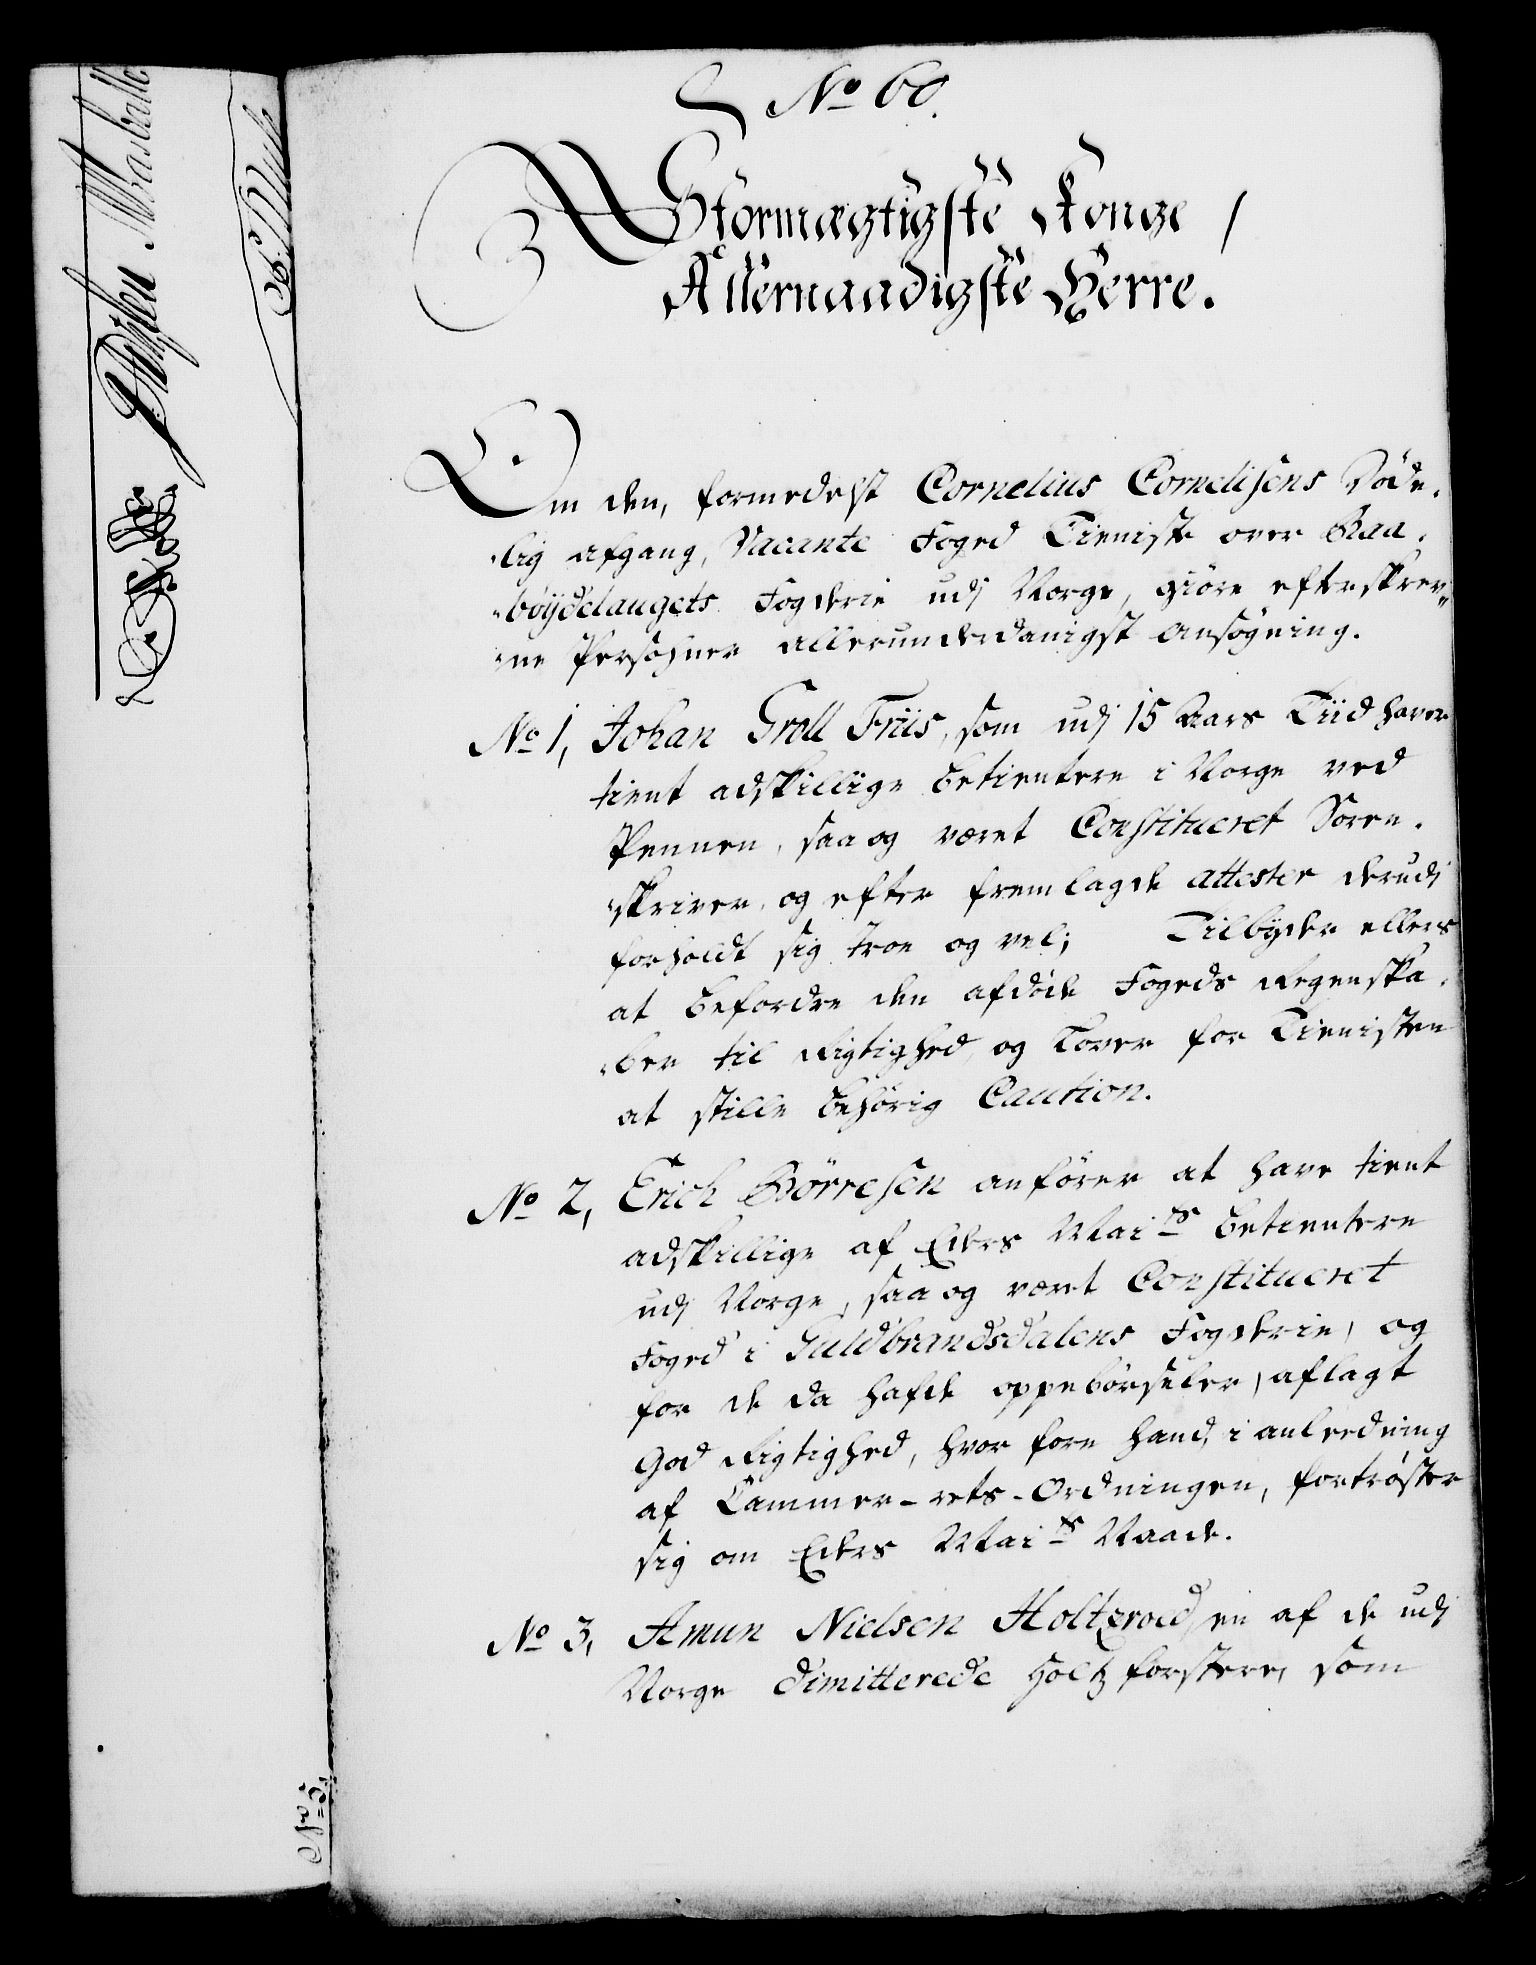 No 60.
Stormægtigste Konge /
Allernaadigste Herre.
Om den, formedelst Cornelius Cornelisens Døde-
-lig afgang, Vacante Foged Tieniste over Raa-
-böydelaugets Fogderie udj Norge, giöre efterskrev-
-ne Persohner allerunderdanigst ansøgning.
No 1, Johan Groll Friis, som udj 15 Aars Tiid haver
tient adskillige betientere i Norge ved
Pennen, saa og været Constitueret Soren-
-skriver, og efter fremlagde attester derudj
forholdt sig troe og vel; Tilbyder ellers
at befordre den afdøde Fogeds Regenska-
-ber til Rigtighed, og Lover for Tienisten
at stille behörig Caution.
No 2, Erich Börresen anförer at have tient
adskillige af Eders Mai ts betientere
udj Norge, saa og været Constitueret
Foged i Guldbrandsdalens Fogderie, og
for de da hafde oppebörseler, aflagt
God Rigtighed, hvor fore hand, i anledning
af Cammer-rets-Ordningen, fortröster
sig om Eders Mai ts Naade.
No 3, Amun Nielsen Holtzroed, en af de udj
Norge dimitterede Holtzforstere, som
No 5,